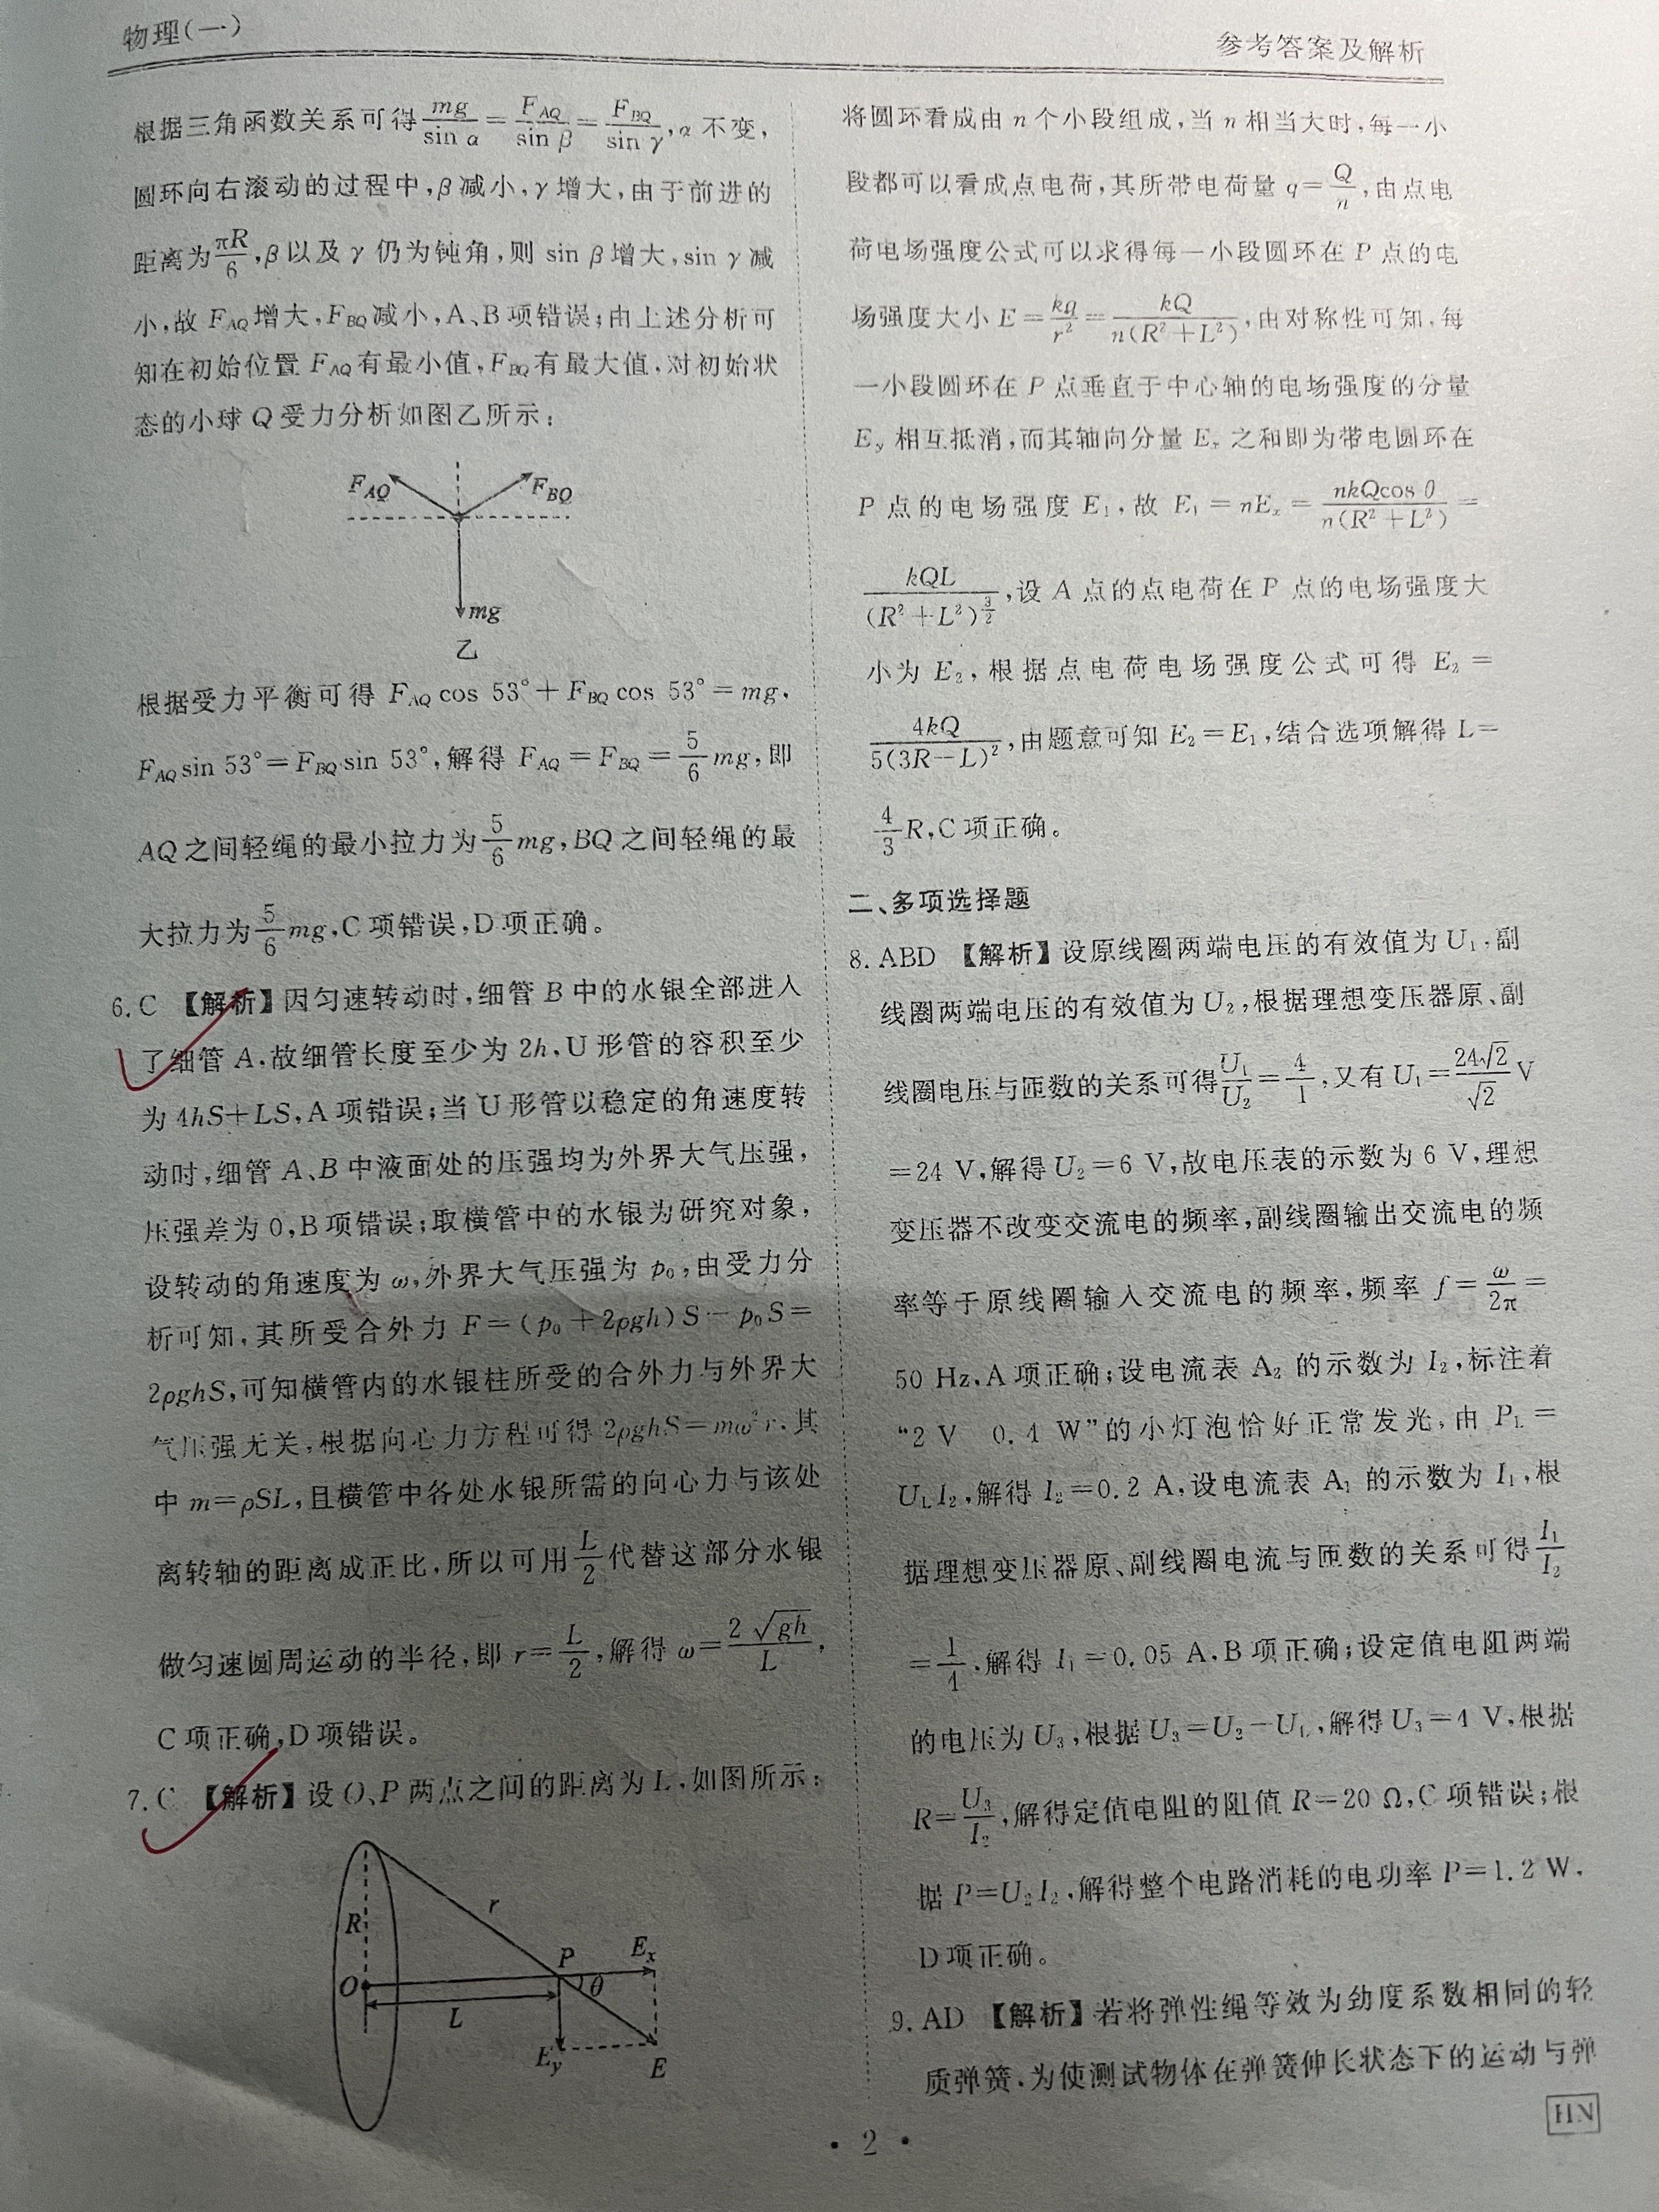 物理(一)
参考答案及解析
根据三角函数关系可得mg/sin α=F_AQ/sin β=F_BQ/sin γ,α不变,
圆环向右滚动的过程中,β减小,γ增大,由于前进的
距离为πR/6,β以及γ仍为钝角,则 sin β增大,sin γ减
小,故 F_AQ增大,F_BQ减小,A、B项错误;由上述分析可
知在初始位置 F_AQ有最小值,F_BQ有最大值,对初始状
态的小球 Q 受力分析如图乙所示:
F_AQ
F_BQ
mg
乙
根据受力平衡可得 F_AQ cos 53°+F_BQ cos 53°=mg,
F_AQ sin 53°=F_BQ sin 53°,解得 F_AQ=F_BQ=5/6 mg,即
AQ之间轻绳的最小拉力为5/6 mg,BQ之间轻绳的最
大拉力为5/6 mg,C项错误,D项正确。
6. C 【解析】因匀速转动时,细管 B 中的水银全部进入
了细管 A,故细管长度至少为 2h,U形管的容积至少
为 4hS+LS,A项错误;当U形管以稳定的角速度转
动时,细管 A、B中液面处的压强均为外界大气压强,
压强差为 0,B项错误;取横管中的水银为研究对象,
设转动的角速度为 ω,外界大气压强为 p₀,由受力分
析可知,其所受合外力 F=(p₀+2ρgh)S-p₀S=
2ρghS,可知横管内的水银柱所受的合外力与外界大
气压强无关,根据向心力方程可得 2ρghS=mω²r,其
中 m=ρSL,且横管中各处水银所需的向心力与该处
离转轴的距离成正比,所以可用L/2代替这部分水银
做匀速圆周运动的半径,即 r=L/2,解得 ω=2√gh/L,
C项正确,D项错误。
7. C 【解析】设 O、P 两点之间的距离为 L,如图所示:
R
r
O
P
E_x
θ
L
E_y
E
将圆环看成由 n 个小段组成,当 n 相当大时,每一小
段都可以看成点电荷,其所带电荷量 q=Q/n,由点电
荷电场强度公式可以求得每一小段圆环在 P 点的电
场强度大小 E=kq/r²=kQ/n(R²+L²),由对称性可知,每
一小段圆环在 P 点垂直于中心轴的电场强度的分量
E_y 相互抵消,而其轴向分量 E_x 之和即为带电圆环在
P 点的电场强度 E₁,故 E₁=nE_x=nkQcos θ/n(R²+L²)=
kQL/(R²+L²)^(3/2),设 A 点的点电荷在 P 点的电场强度大
小为 E₂,根据点电荷电场强度公式可得 E₂=
4kQ/5(3R-L)²,由题意可知 E₂=E₁,结合选项解得 L=
4/3 R,C项正确。
二、多项选择题
8. ABD 【解析】设原线圈两端电压的有效值为 U₁,副
线圈两端电压的有效值为 U₂,根据理想变压器原、副
线圈电压与匝数的关系可得U₁/U₂=4/1,又有 U₁=24√2/√2 V
=24 V,解得 U₂=6 V,故电压表的示数为 6 V,理想
变压器不改变交流电的频率,副线圈输出交流电的频
率等于原线圈输入交流电的频率,频率 f=ω/2π=
50 Hz,A项正确;设电流表 A₂ 的示数为 I₂,标注着
“2 V 0.4 W”的小灯泡恰好正常发光,由 P_L=
U_L I₂,解得 I₂=0.2 A,设电流表 A₁ 的示数为 I₁,根
据理想变压器原、副线圈电流与匝数的关系可得I₁/I₂
=1/4,解得 I₁=0.05 A,B项正确;设定值电阻两端
的电压为 U₃,根据 U₃=U₂-U_L,解得 U₃=4 V,根据
R=U₃/I₂,解得定值电阻的阻值 R=20 Ω,C项错误;根
据 P=U₂I₂,解得整个电路消耗的电功率 P=1.2 W,
D项正确。
9. AD 【解析】若将弹性绳等效为劲度系数相同的轻
质弹簧,为使测试物体在弹簧伸长状态下的运动与弹
HN
· 2 ·